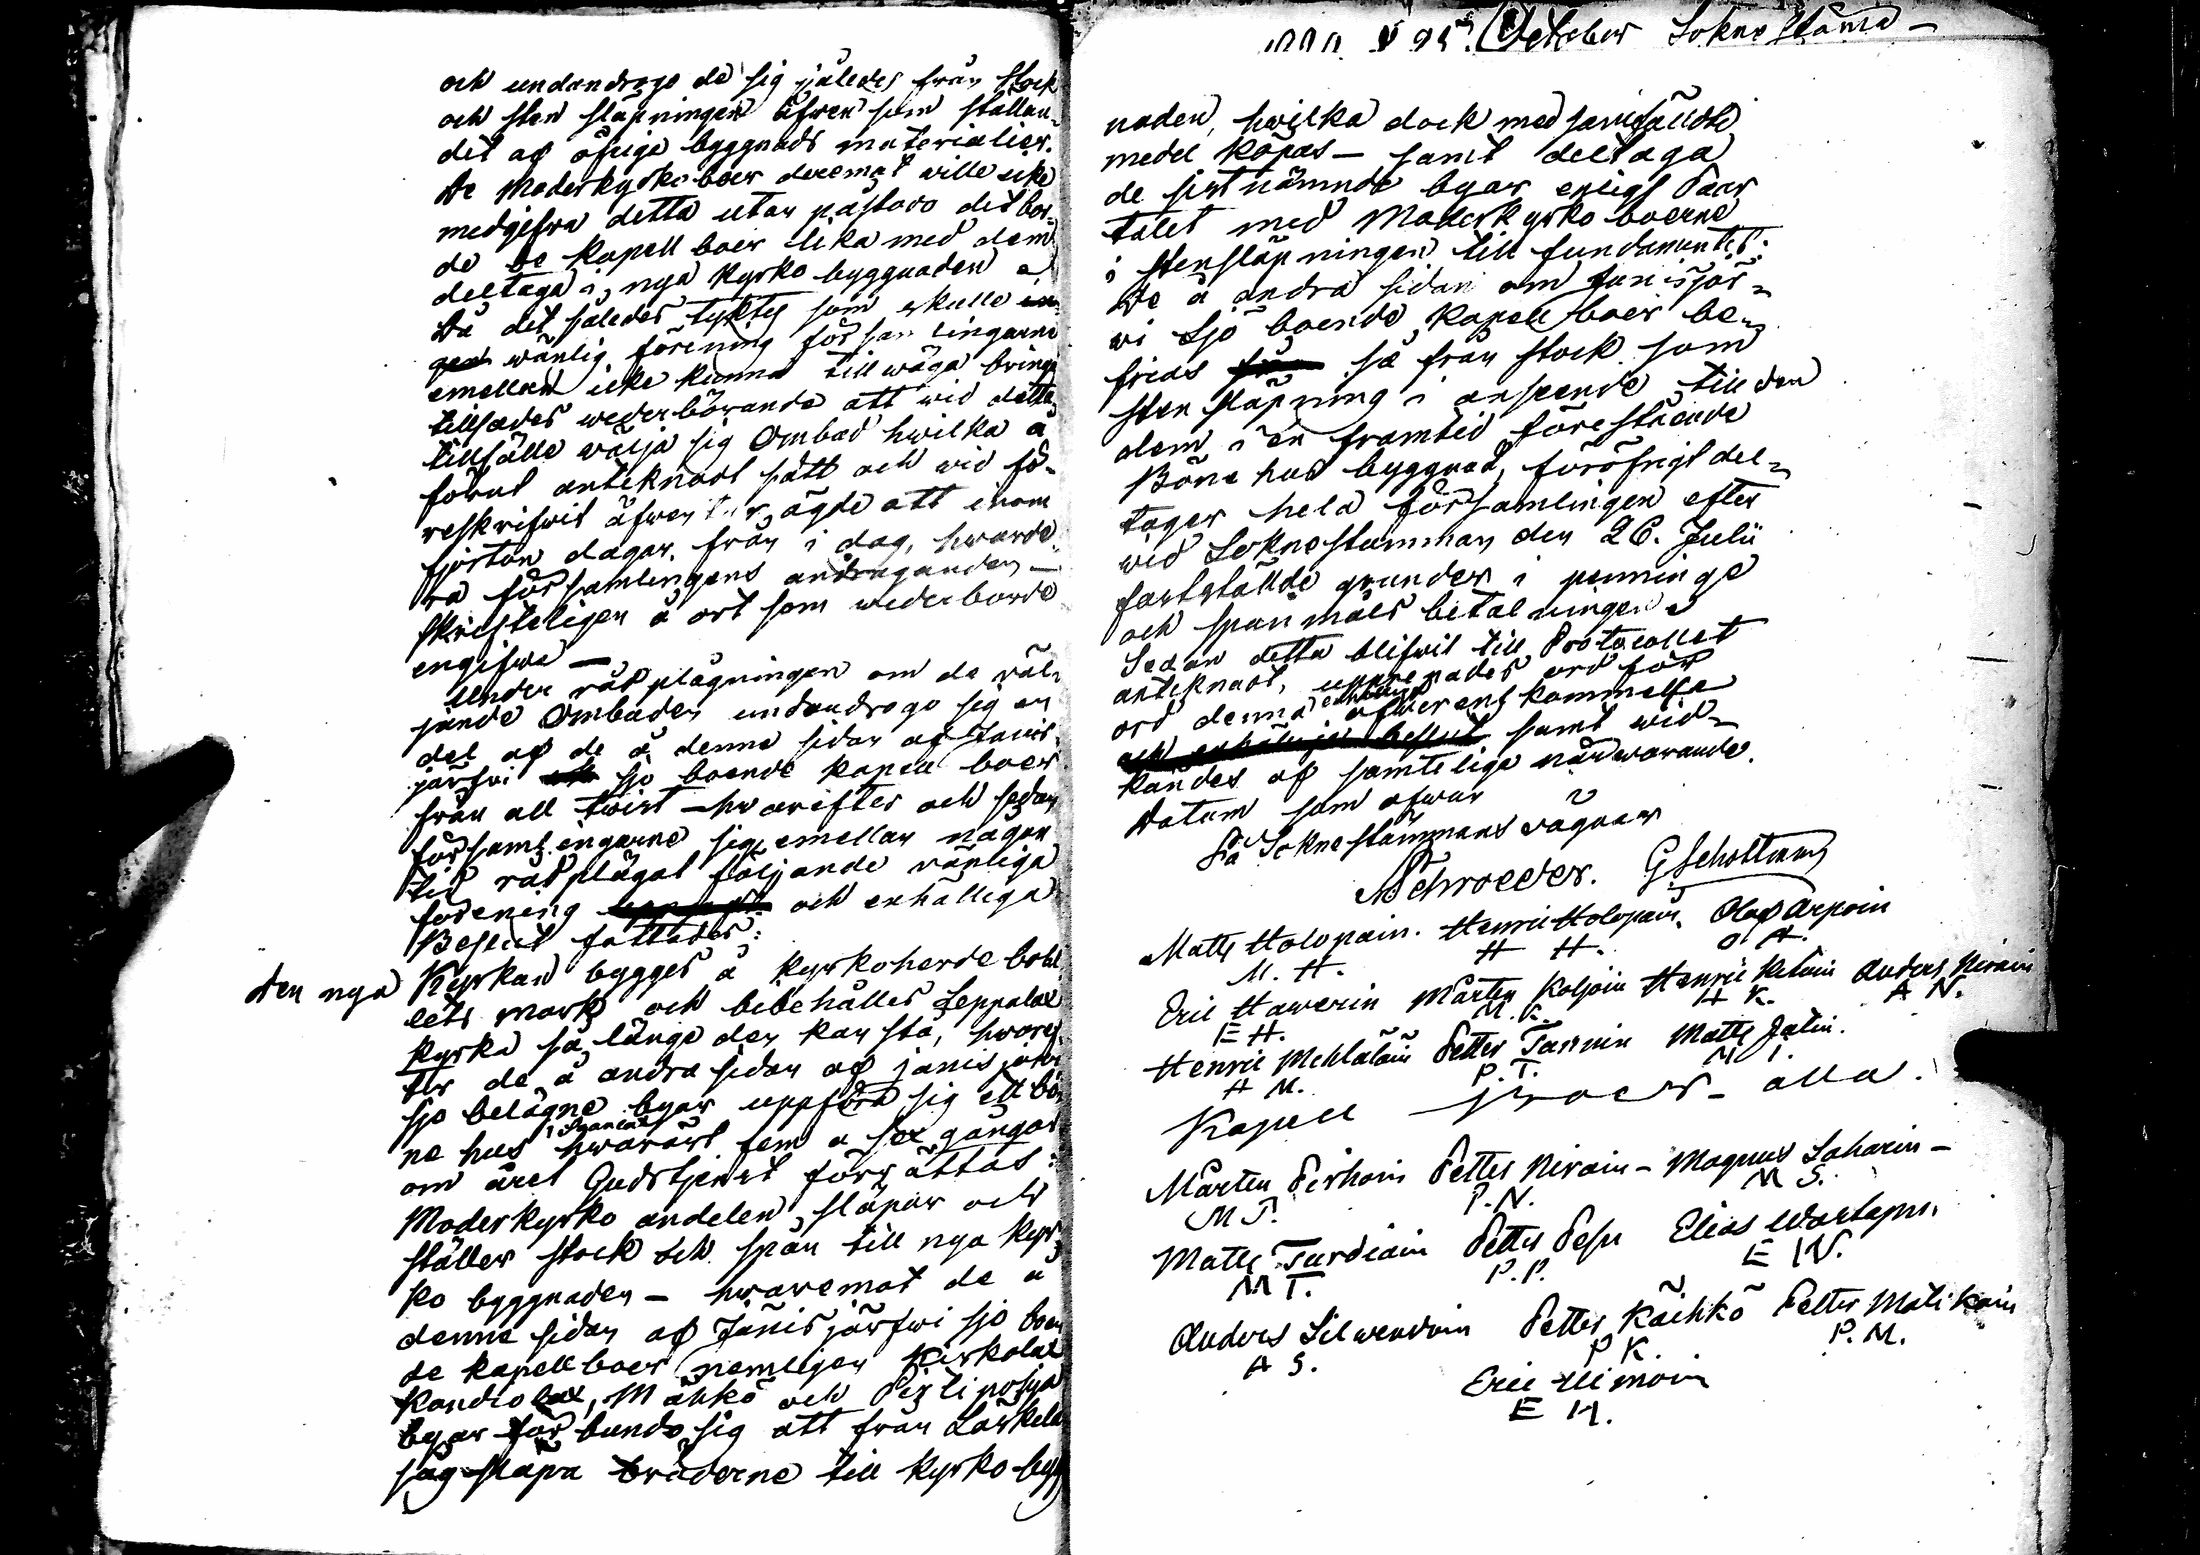 och undandrogo de sig således från stock
och sten släpningen äfwen som ställan-
det af öfriga byggnads materialier.
De Moderkyrko boer deremot wille icke
medgifwa detta utan påstodo det bor-
de de kapell boer lika med dem
deltaga i nya kyrko byggnaden
Då det således tyktes som skulle
wänlig förening församlingarne
emellan icke kunna till wäga bringas
tillsades wederbörande att wid detta
tillfälle wälja sig Ombud hwilka å
förut anteknadt sätt och wid fö-
reskrifwit äfwentyr, ägde att inom
fjorton dagar, från i dag, hwarde-
ra församlingens andraganden
skrifteligen å ort som wederborde
ingifwa —
Under rådplägningen om de wäl-
jande Ombuden undandrogo sig en
del af de å denna sidan af Janis-
järfwi sjö boende kapell boer
från all twist — hwarefter och sedan
församlingarne sig emellan någon
tid rådplägat följande wänliga
förening och enhälliga
Beslut fattades:
Den nya Kyrkan bygges å kyrkoherde bohl
lets mark och bibehålles Leppälax
kyrka så länge den kan stå, hwaref-
ter de å andra sidan af janisjärwi
sjö belägne byar uppföra sig ett bö-
ne hus hwaräst fem a sex gångor
om året Gudstjenst förrättas:
Moderkyrko andelen släpar och
ställer stock och spån till nya kyr-
ko byggnaden — hwaremot de å
denna sidan af Jänisjärfwi sjö boen
de kapellboer nemligen Kirkolax
Kondiolax, Mähkö och
byar förbundo sig att från Läskelä
såg släpa bräderne till kyrko bygg
October Sokne stäma —
naden, hwilka dock med samfäldte
medel köpas — samt deltaga
de sistnämnde byar enligt Paar
talet med Moderkyrko boerne
i stensläpningen till fundamentet:
De å andra sidan om Janisjär-
wi sjö boende kapell boer be-
frias så från stock som
sten släpning i anseende till den
dem i en framtid förestående
Böne hus byggnad, föröfrigt del-
tager hela församlingen efter
wid Soknestämman den 26. Julii
fastställde grunder i penninge
och spanmåls betalningen.
Sedan detta blifwit till Protocollet
anteknadt, upplästes ord för
ord denna öfwerenskommelse
samt wid-
kändes af samtelige närwarande.
Datum som ofwan
På Sokne stämmans wägnar
Schroeder. G Schottman
Matts Holopain. Henric Holopain. Olof Arpoin
M. H. H H. O. A.
Eric Hawerin Mårten Koljoin Henric Ketoin Anders Nirain
E H. M. K. H K. A N.
Henric Mehlatain Petter Tarnin Matts Jatin.
H M. P. T. M I.
Kapell
Mårten Perhoin Petter Nirain — Magnus Saharin —
M P. P. N. M S.
Matts Turdiain Petter Pesu Elias Wartapu.
M T. P. P. E W.
Anders Silwendoin Petter Käihkö Petter Matikain
A S. P K. P. M.
Eric
E H.